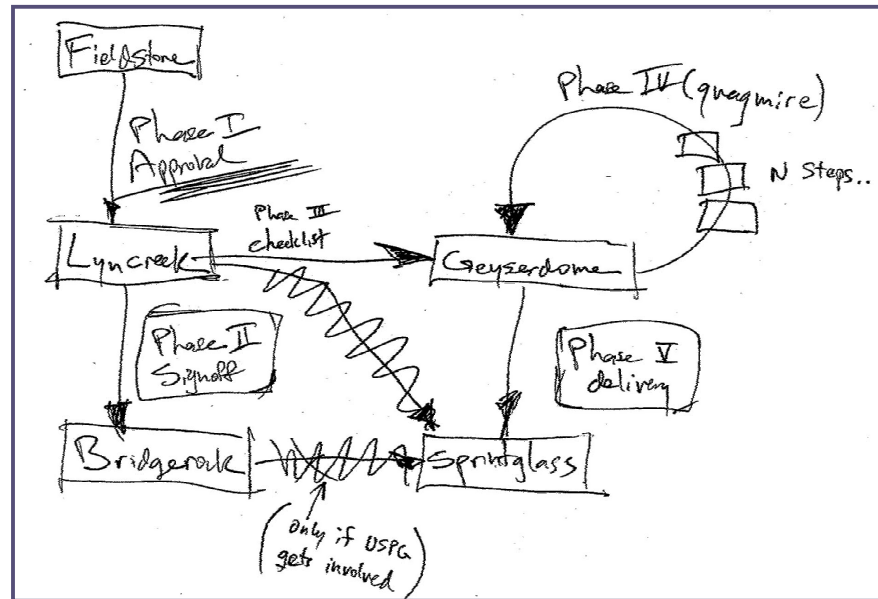 Fieldstone
Phase I
Approval
Phase IV (quagmire)
N Steps..
Phase III
checklist
Lyncreek
Geyserdome
Phase II
Signoff
Phase V
delivery
Bridgerock
Sprintglass
(only if USPG
gets involved)